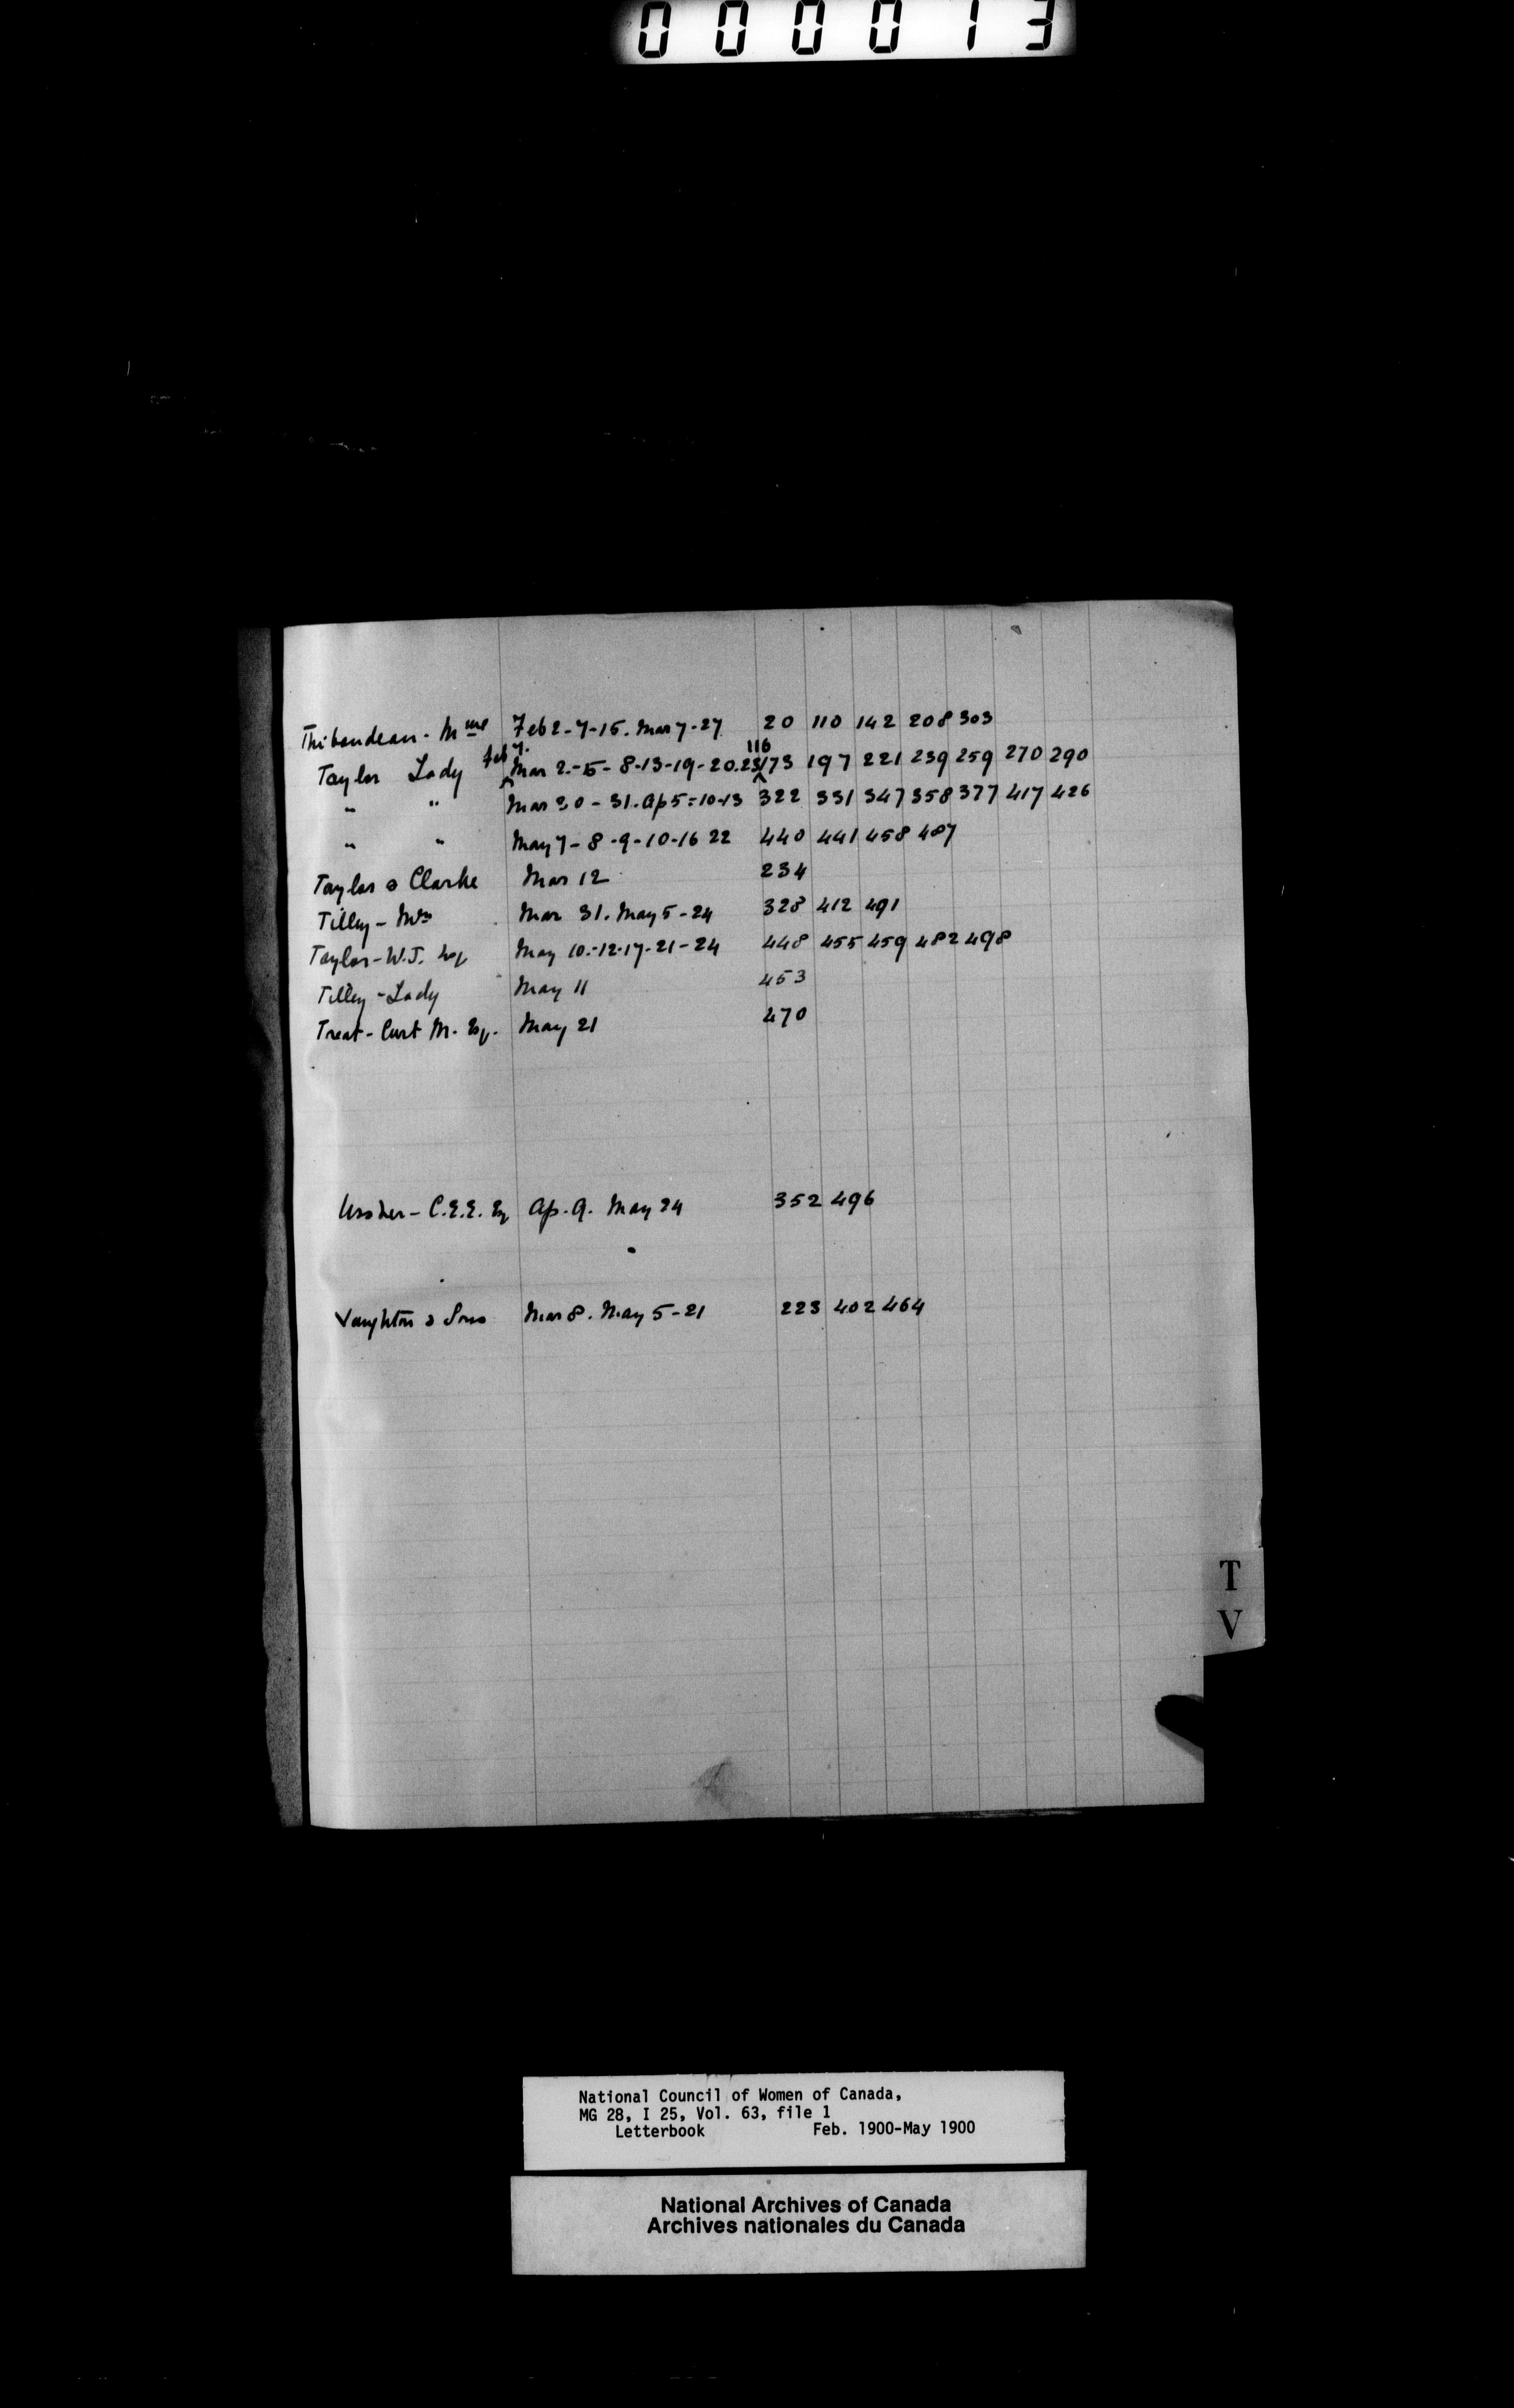 000013
Thibaudeau - Mme Feb 2-7-15. Mar 7-27 20 110 142 208 303
Feb 7. 116
Taylor Lady Mar 2.-5-8-13-19-20.23 173 197 221 239 259 270 290
" " Mar 30-31. Ap 5-10-13 322 331 347 358 377 417 426
" " May 7-8-9-10-16 22 440 441 458 487
Taylor & Clarke Mar 12 234
Tilley - Mrs Mar 31. May 5-24 328 412 491
Taylor - W.J. Esq May 10.-12-17-21-24 448 455 459 482 498
Tilley - Lady May 11 453
Treat - Curt M. Esq. May 21 470
Ussher - C.E.E. Esq Ap. 9. May 24 352 496
Vaughton & Sons Mar 8. May 5-21 223 402 464
T
V
National Council of Women of Canada,
MG 28, I 25, Vol. 63, file 1
Letterbook Feb. 1900-May 1900
National Archives of Canada
Archives nationales du Canada